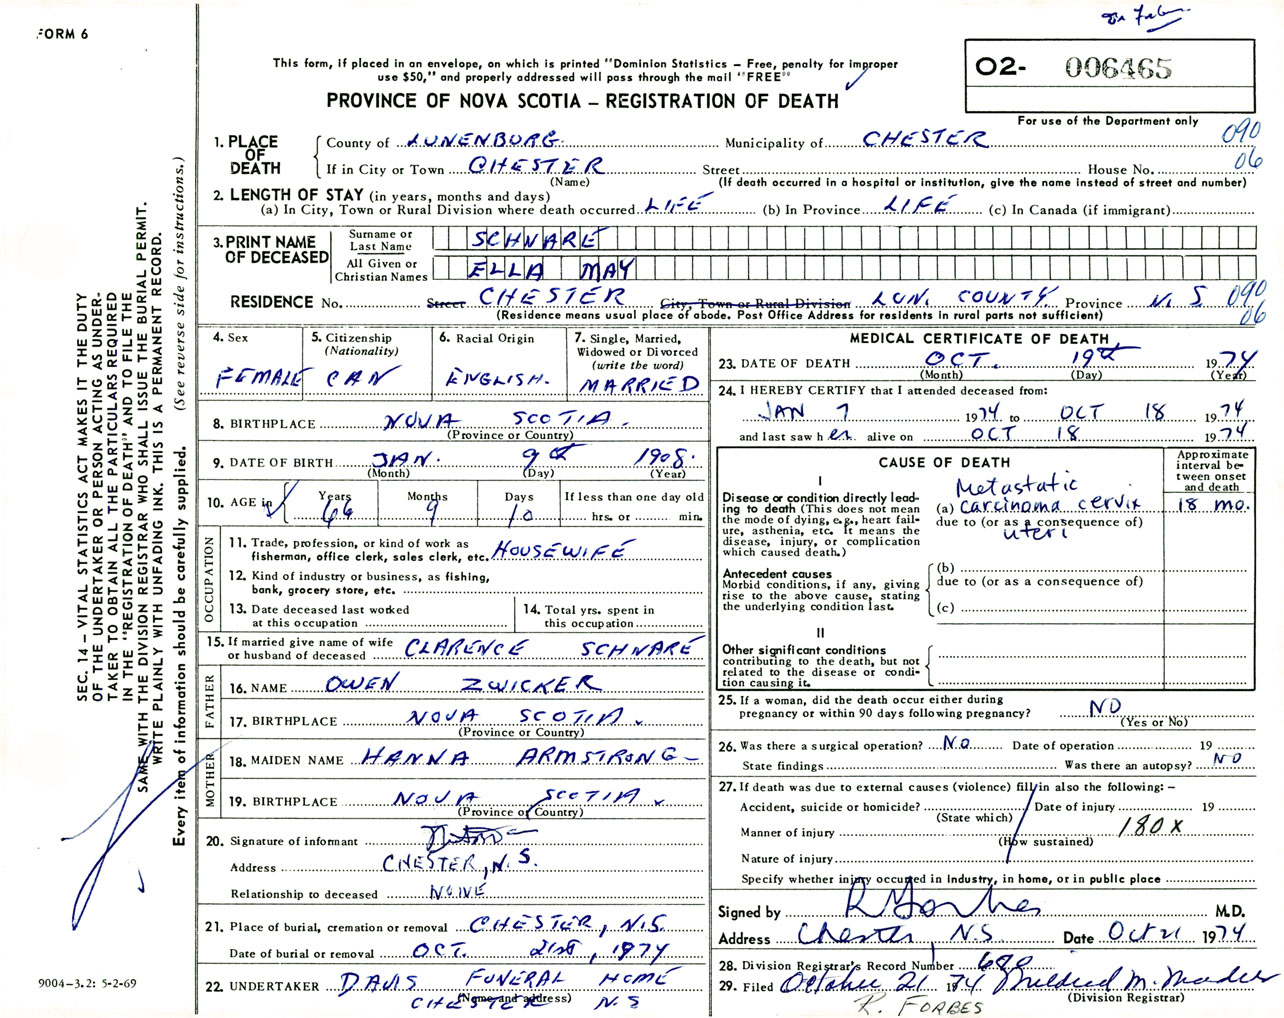 FORM 6
This form, if placed in an envelope, on which is printed "Dominion Statistics – Free, penalty for improper
use $50," and properly addressed will pass through the mail "FREE"
PROVINCE OF NOVA SCOTIA – REGISTRATION OF DEATH
O2- 006465
For use of the Department only
090
06
1. PLACE OF DEATH
County of LUNENBURG Municipality of CHESTER
If in City or Town CHESTER Street House No.
(Name) (If death occurred in a hospital or institution, give the name instead of street and number)
2. LENGTH OF STAY (in years, months and days)
(a) In City, Town or Rural Division where death occurred LIFE (b) In Province LIFE (c) In Canada (if immigrant)
3. PRINT NAME OF DECEASED
Surname or Last Name SCHNARE
All Given or Christian Names ELLA MAY
RESIDENCE No. Street CHESTER City, Town or Rural Division LUN. COUNTY Province N.S. 090
06
(Residence means usual place of abode. Post Office Address for residents in rural parts not sufficient)
4. Sex
FEMALE
5. Citizenship
(Nationality)
CAN
6. Racial Origin
ENGLISH.
7. Single, Married,
Widowed or Divorced
(write the word)
MARRIED
8. BIRTHPLACE NOVA SCOTIA.
(Province or Country)
9. DATE OF BIRTH JAN. 9th 1908.
(Month) (Day) (Year)
10. AGE in Years Months Days If less than one day old
66 9 10 hrs. or min.
OCCUPATION
11. Trade, profession, or kind of work as
fisherman, office clerk, sales clerk, etc. HOUSEWIFE
12. Kind of industry or business, as fishing,
bank, grocery store, etc.
13. Date deceased last worked
at this occupation
14. Total yrs. spent in
this occupation
15. If married give name of wife
or husband of deceased CLARENCE SCHNARE
FATHER
16. NAME OWEN ZWICKER
17. BIRTHPLACE NOVA SCOTIA.
(Province or Country)
MOTHER
18. MAIDEN NAME HANNA ARMSTRONG
19. BIRTHPLACE NOVA SCOTIA.
(Province or Country)
20. Signature of informant
Address CHESTER, N.S.
Relationship to deceased NONE
21. Place of burial, cremation or removal CHESTER, N.S.
Date of burial or removal OCT. 21st, 1974
22. UNDERTAKER DAVIS FUNERAL HOME
(Name and address)
CHESTER N.S
MEDICAL CERTIFICATE OF DEATH
23. DATE OF DEATH OCT. 19th 1974
(Month) (Day) (Year)
24. I HEREBY CERTIFY that I attended deceased from:
JAN 7 1974 to OCT 18 1974
and last saw her alive on OCT 18 1974
CAUSE OF DEATH
Approximate
interval be-
tween onset
and death
I
Disease or condition directly lead-
ing to death (This does not mean
the mode of dying, e.g., heart fail-
ure, asthenia, etc. It means the
disease, injury, or complication
which caused death.)
Metastatic
(a) carcinoma cervix 18 mo.
due to (or as a consequence of)
uteri
Antecedent causes
Morbid conditions, if any, giving
rise to the above cause, stating
the underlying condition last.
(b)
due to (or as a consequence of)
(c)
II
Other significant conditions
contributing to the death, but not
related to the disease or condi-
tion causing it.
25. If a woman, did the death occur either during
pregnancy or within 90 days following pregnancy? NO
(Yes or No)
26. Was there a surgical operation? NO Date of operation 19
State findings Was there an autopsy? NO
27. If death was due to external causes (violence) fill in also the following: –
Accident, suicide or homicide? Date of injury 19
(State which)
Manner of injury 180X
(How sustained)
Nature of injury
Specify whether injury occured in Industry, in home, or in public place
Signed by R Forbes M.D.
Address Chester, N.S Date Oct 21 1974
28. Division Registrar's Record Number
29. Filed October 21 1974 Mildred M. Mader
(Division Registrar)
R. FORBES
SEC. 14 – VITAL STATISTICS ACT MAKES IT THE DUTY
OF THE UNDERTAKER OR PERSON ACTING AS UNDER-
TAKER TO OBTAIN ALL THE PARTICULARS REQUIRED
IN THE "REGISTRATION OF DEATH" AND TO FILE THE
SAME WITH THE DIVISION REGISTRAR WHO SHALL ISSUE THE BURIAL PERMIT.
WRITE PLAINLY WITH UNFADING INK. THIS IS A PERMANENT RECORD.
Every item of information should be carefully supplied. (See reverse side for instructions.)
9004–3.2: 5-2-69